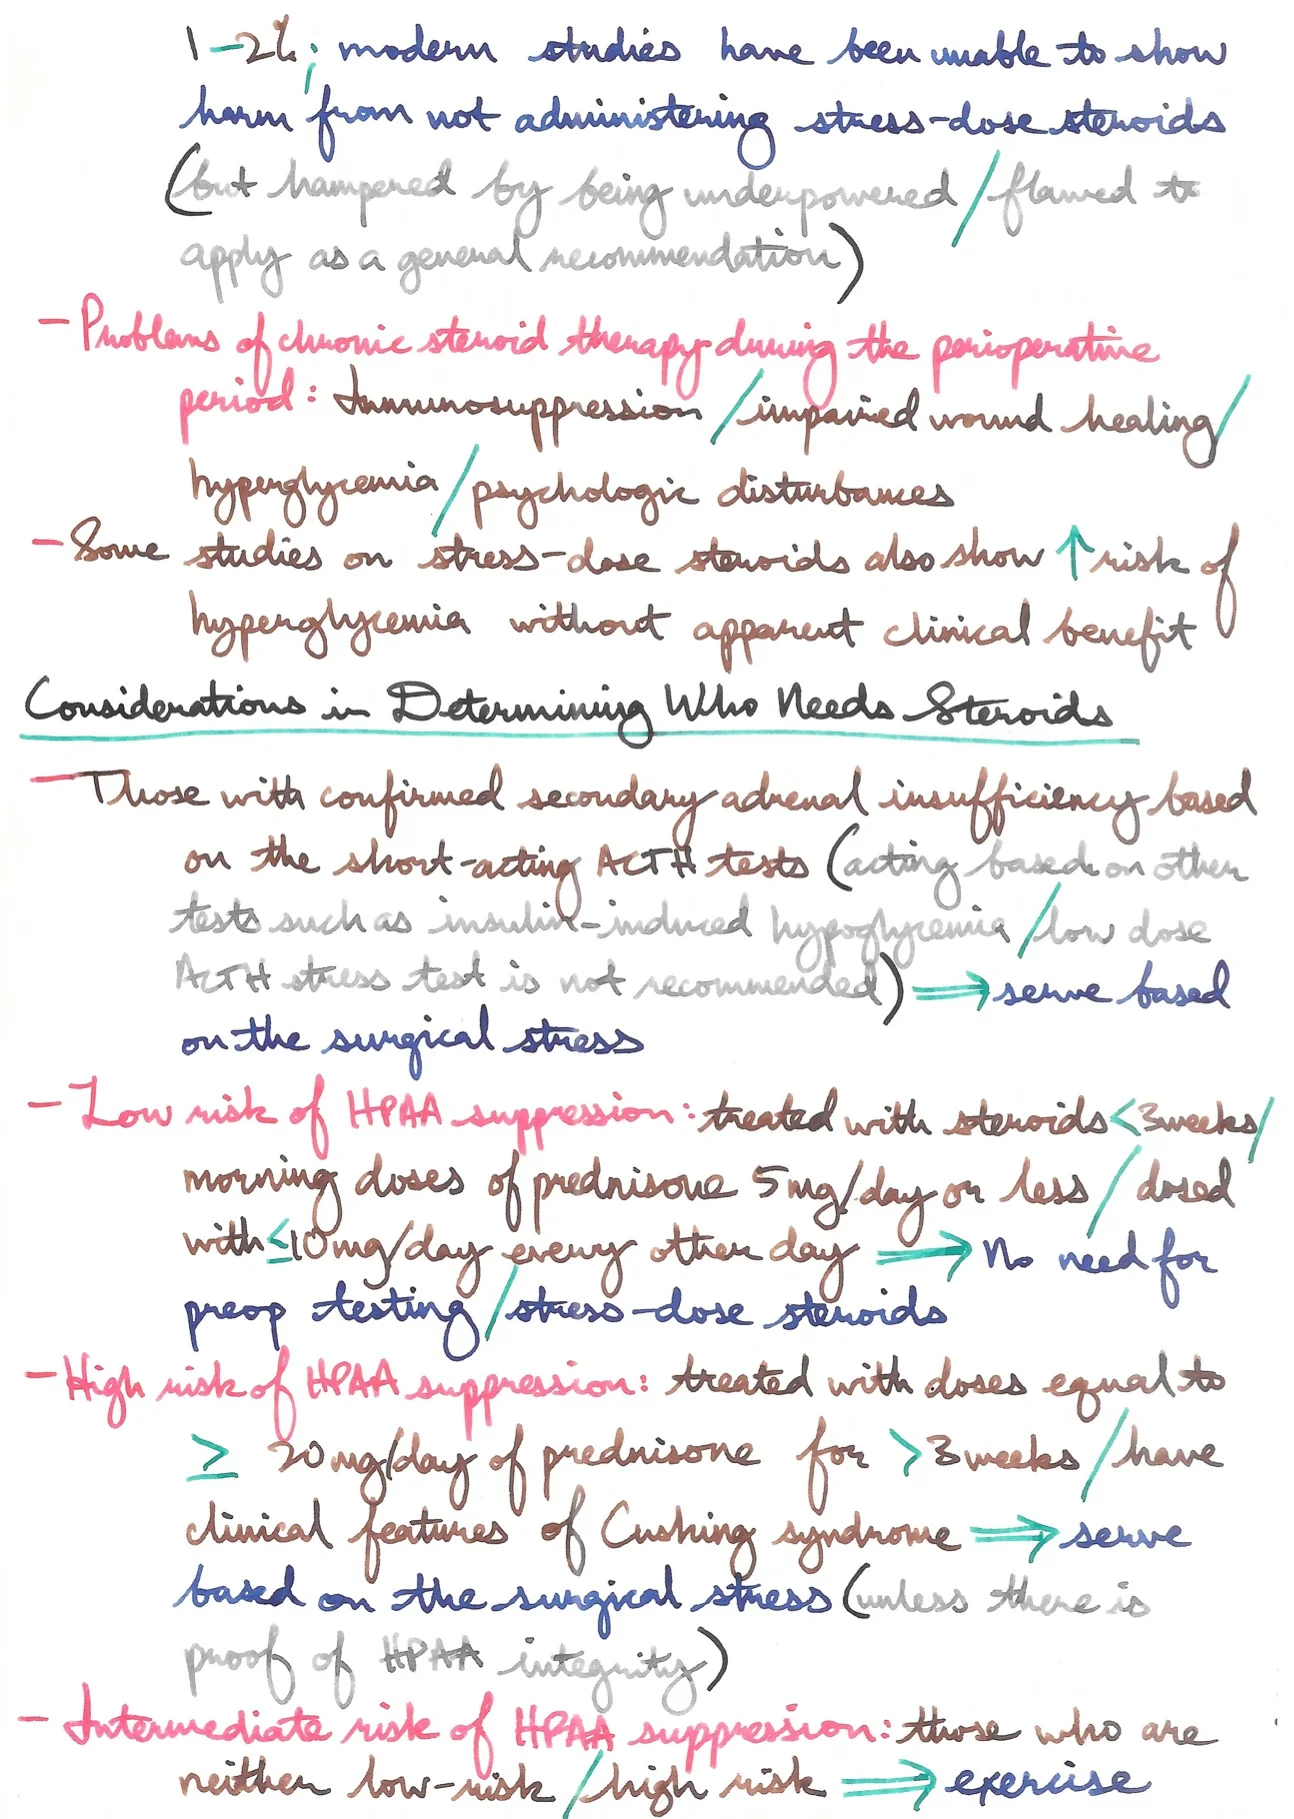 1-2%; modern studies have been unable to show
harm from not administering stress-dose steroids
(but hampered by being underpowered/flawed to
apply as a general recommendation)
- Problems of chronic steroid therapy during the perioperative
period: Immunosuppression/impaired wound healing/
hyperglycemia/psychologic disturbances
- Some studies on stress-dose steroids also show ↑ risk of
hyperglycemia without apparent clinical benefit
Considerations in Determining Who Needs Steroids
- Those with confirmed secondary adrenal insufficiency based
on the short-acting ACTH tests (acting based on other
tests such as insulin-induced hypoglycemia/low dose
ACTH stress test is not recommended) ⟹ serve based
on the surgical stress
- Low risk of HPAA suppression: treated with steroids <3weeks/
morning doses of prednisone 5mg/day or less/dosed
with ≤10mg/day every other day ⟹ No need for
preop testing/stress-dose steroids
- High risk of HPAA suppression: treated with doses equal to
≥ 20mg/day of prednisone for >3weeks/have
clinical features of Cushing syndrome ⟹ serve
based on the surgical stress (unless there is
proof of HPAA integrity)
- Intermediate risk of HPAA suppression: those who are
neither low-risk/high risk ⟹ exercise